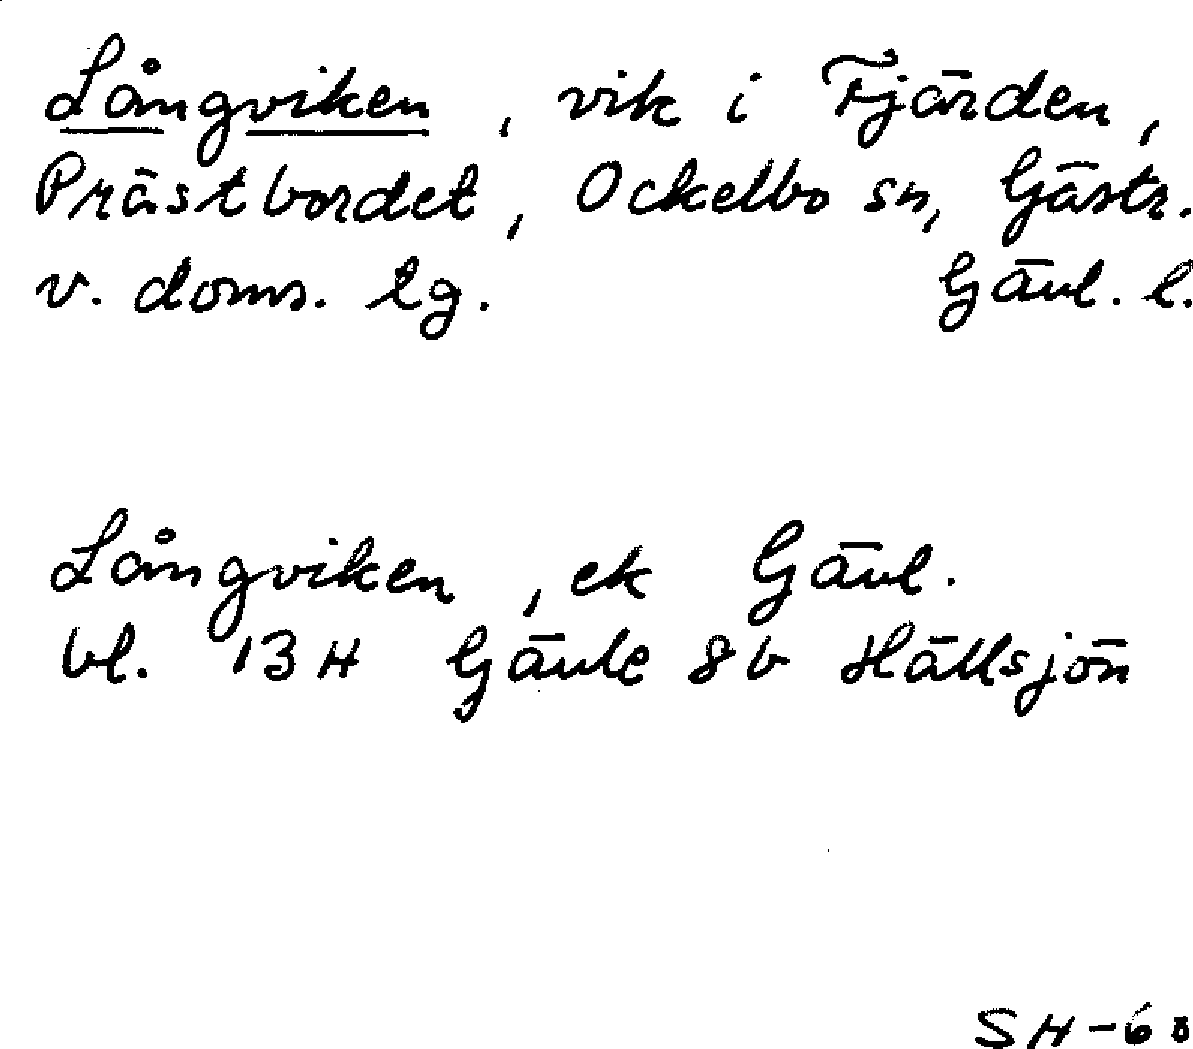 Långviken, vik i Fjärden,
Prästbordet, Ockelbo sn, Gästr.
v. doms. lg. Gävl. l.
Långviken, ek Gävl.
bl. 13H Gävle 8b Hällsjön
SH-68